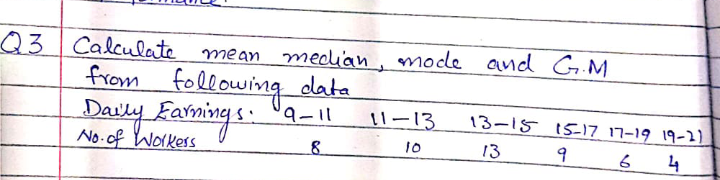 Q3 Calculate mean median, mode and G.M
from following data
Daily Earnings: 9-11 11-13 13-15 15-17 17-19 19-21
No. of Workers 8 10 13 9 6 4